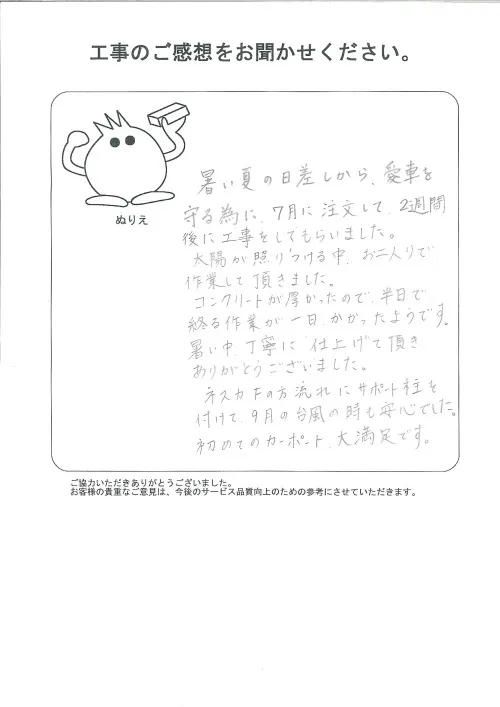 工事のご感想をお聞かせください。
ぬりえ
暑い夏の日差しから、愛車を
守る為に、7月に注文して、2週間
後に工事をしてもらいました。
太陽が照りつける中、お二人りで
作業して頂きました。
コンクリートが厚かったので、半日で
終る作業が一日、かかったようです。
暑い中、丁寧に仕上げて頂き
ありがとうございました。
ネスカFの方流れにサポート柱を
付けて、9月の台風の時も安心でした。
初めてのカーポート、大満足です。
ご協力いただきありがとうございました。
お客様の貴重なご意見は、今後のサービス品質向上のための参考にさせていただきます。